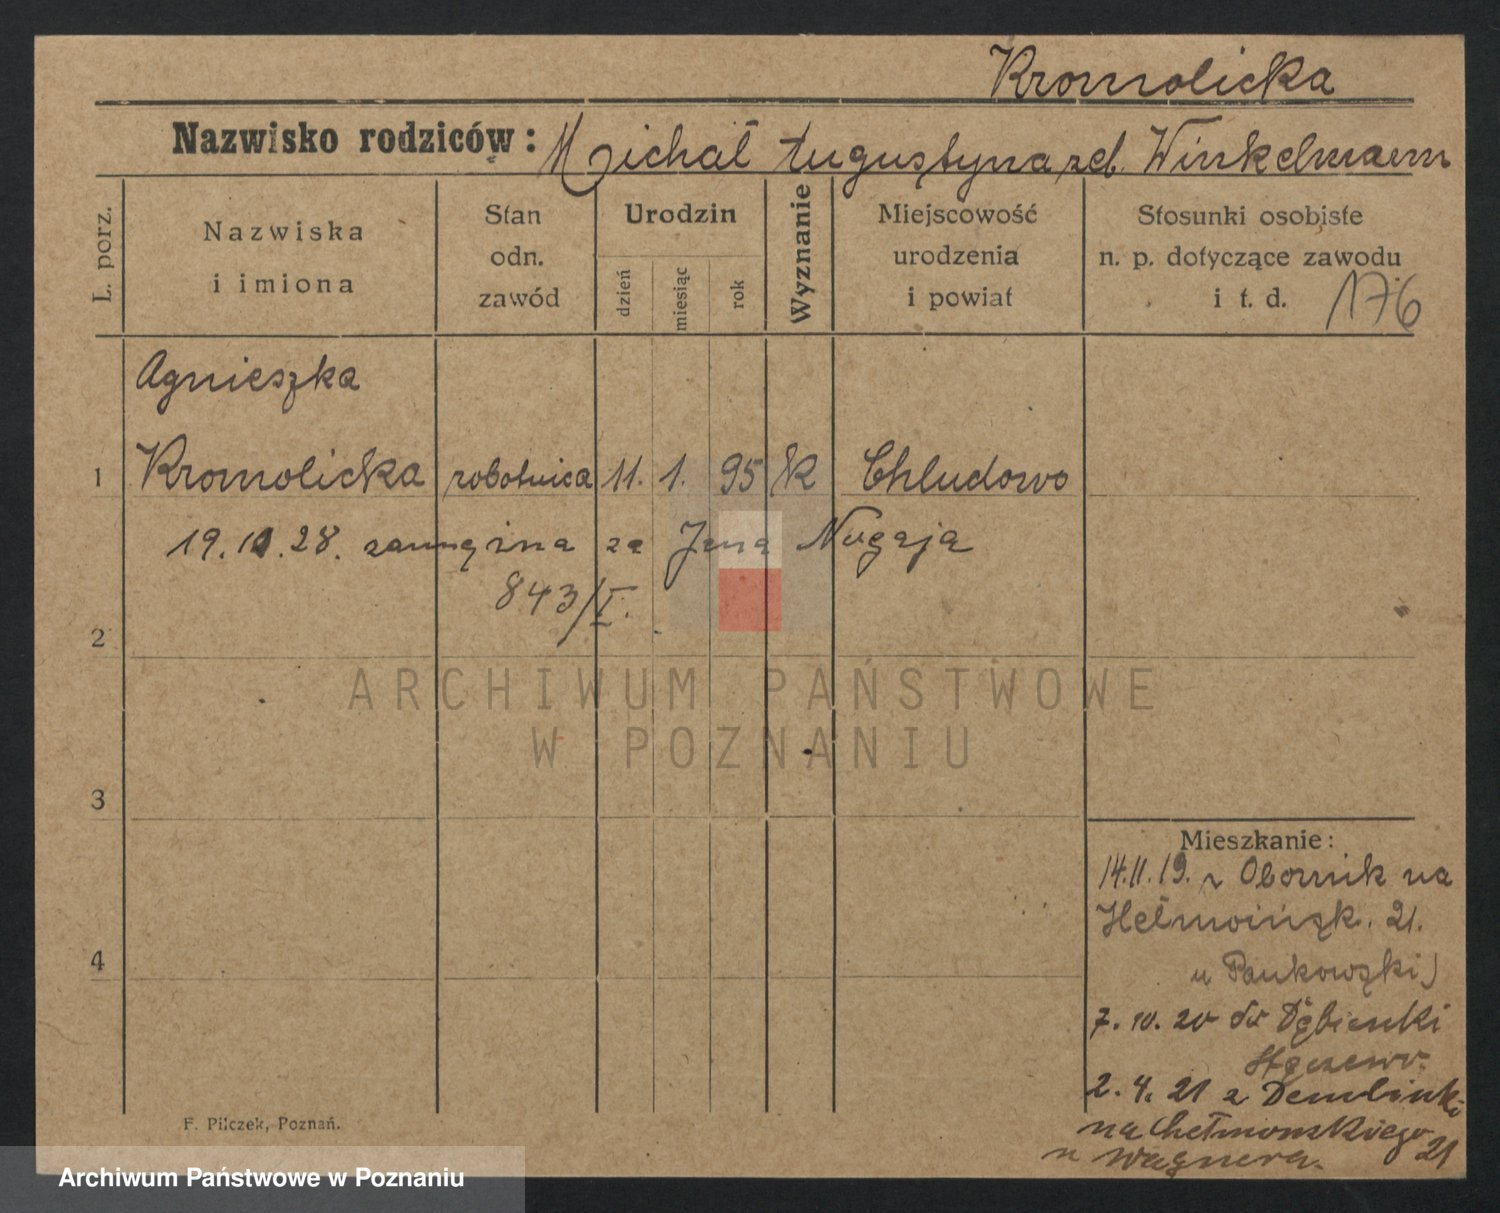 Kromolicka
Nazwisko rodziców: Michał Augustyna zd. Winkelmann
L. porz.
Nazwiska
i imiona
Stan
odn.
zawód
Urodzin
dzień
miesiąc
rok
Wyznanie
Miejscowość
urodzenia
i powiat
Stosunki osobiste
n. p. dotyczące zawodu
i t. d.
176
Agnieszka
1 Kromolicka robotnica 11. 1. 95 k Chludowo
19.10.28. zamężna za Jana Nogaja
843/I.
2
ARCHIWUM PAŃSTWOWE
W POZNANIU
3
Mieszkanie:
14.11.19. z Obornik na
Hełmońsk. 21.
4
u Pankowski
7.10.20 do Dębienki
2.4.21 z Demblinki
na Chełmonskiego 21
u Wagnera.
F. Pilczek, Poznań.
Archiwum Państwowe w Poznaniu